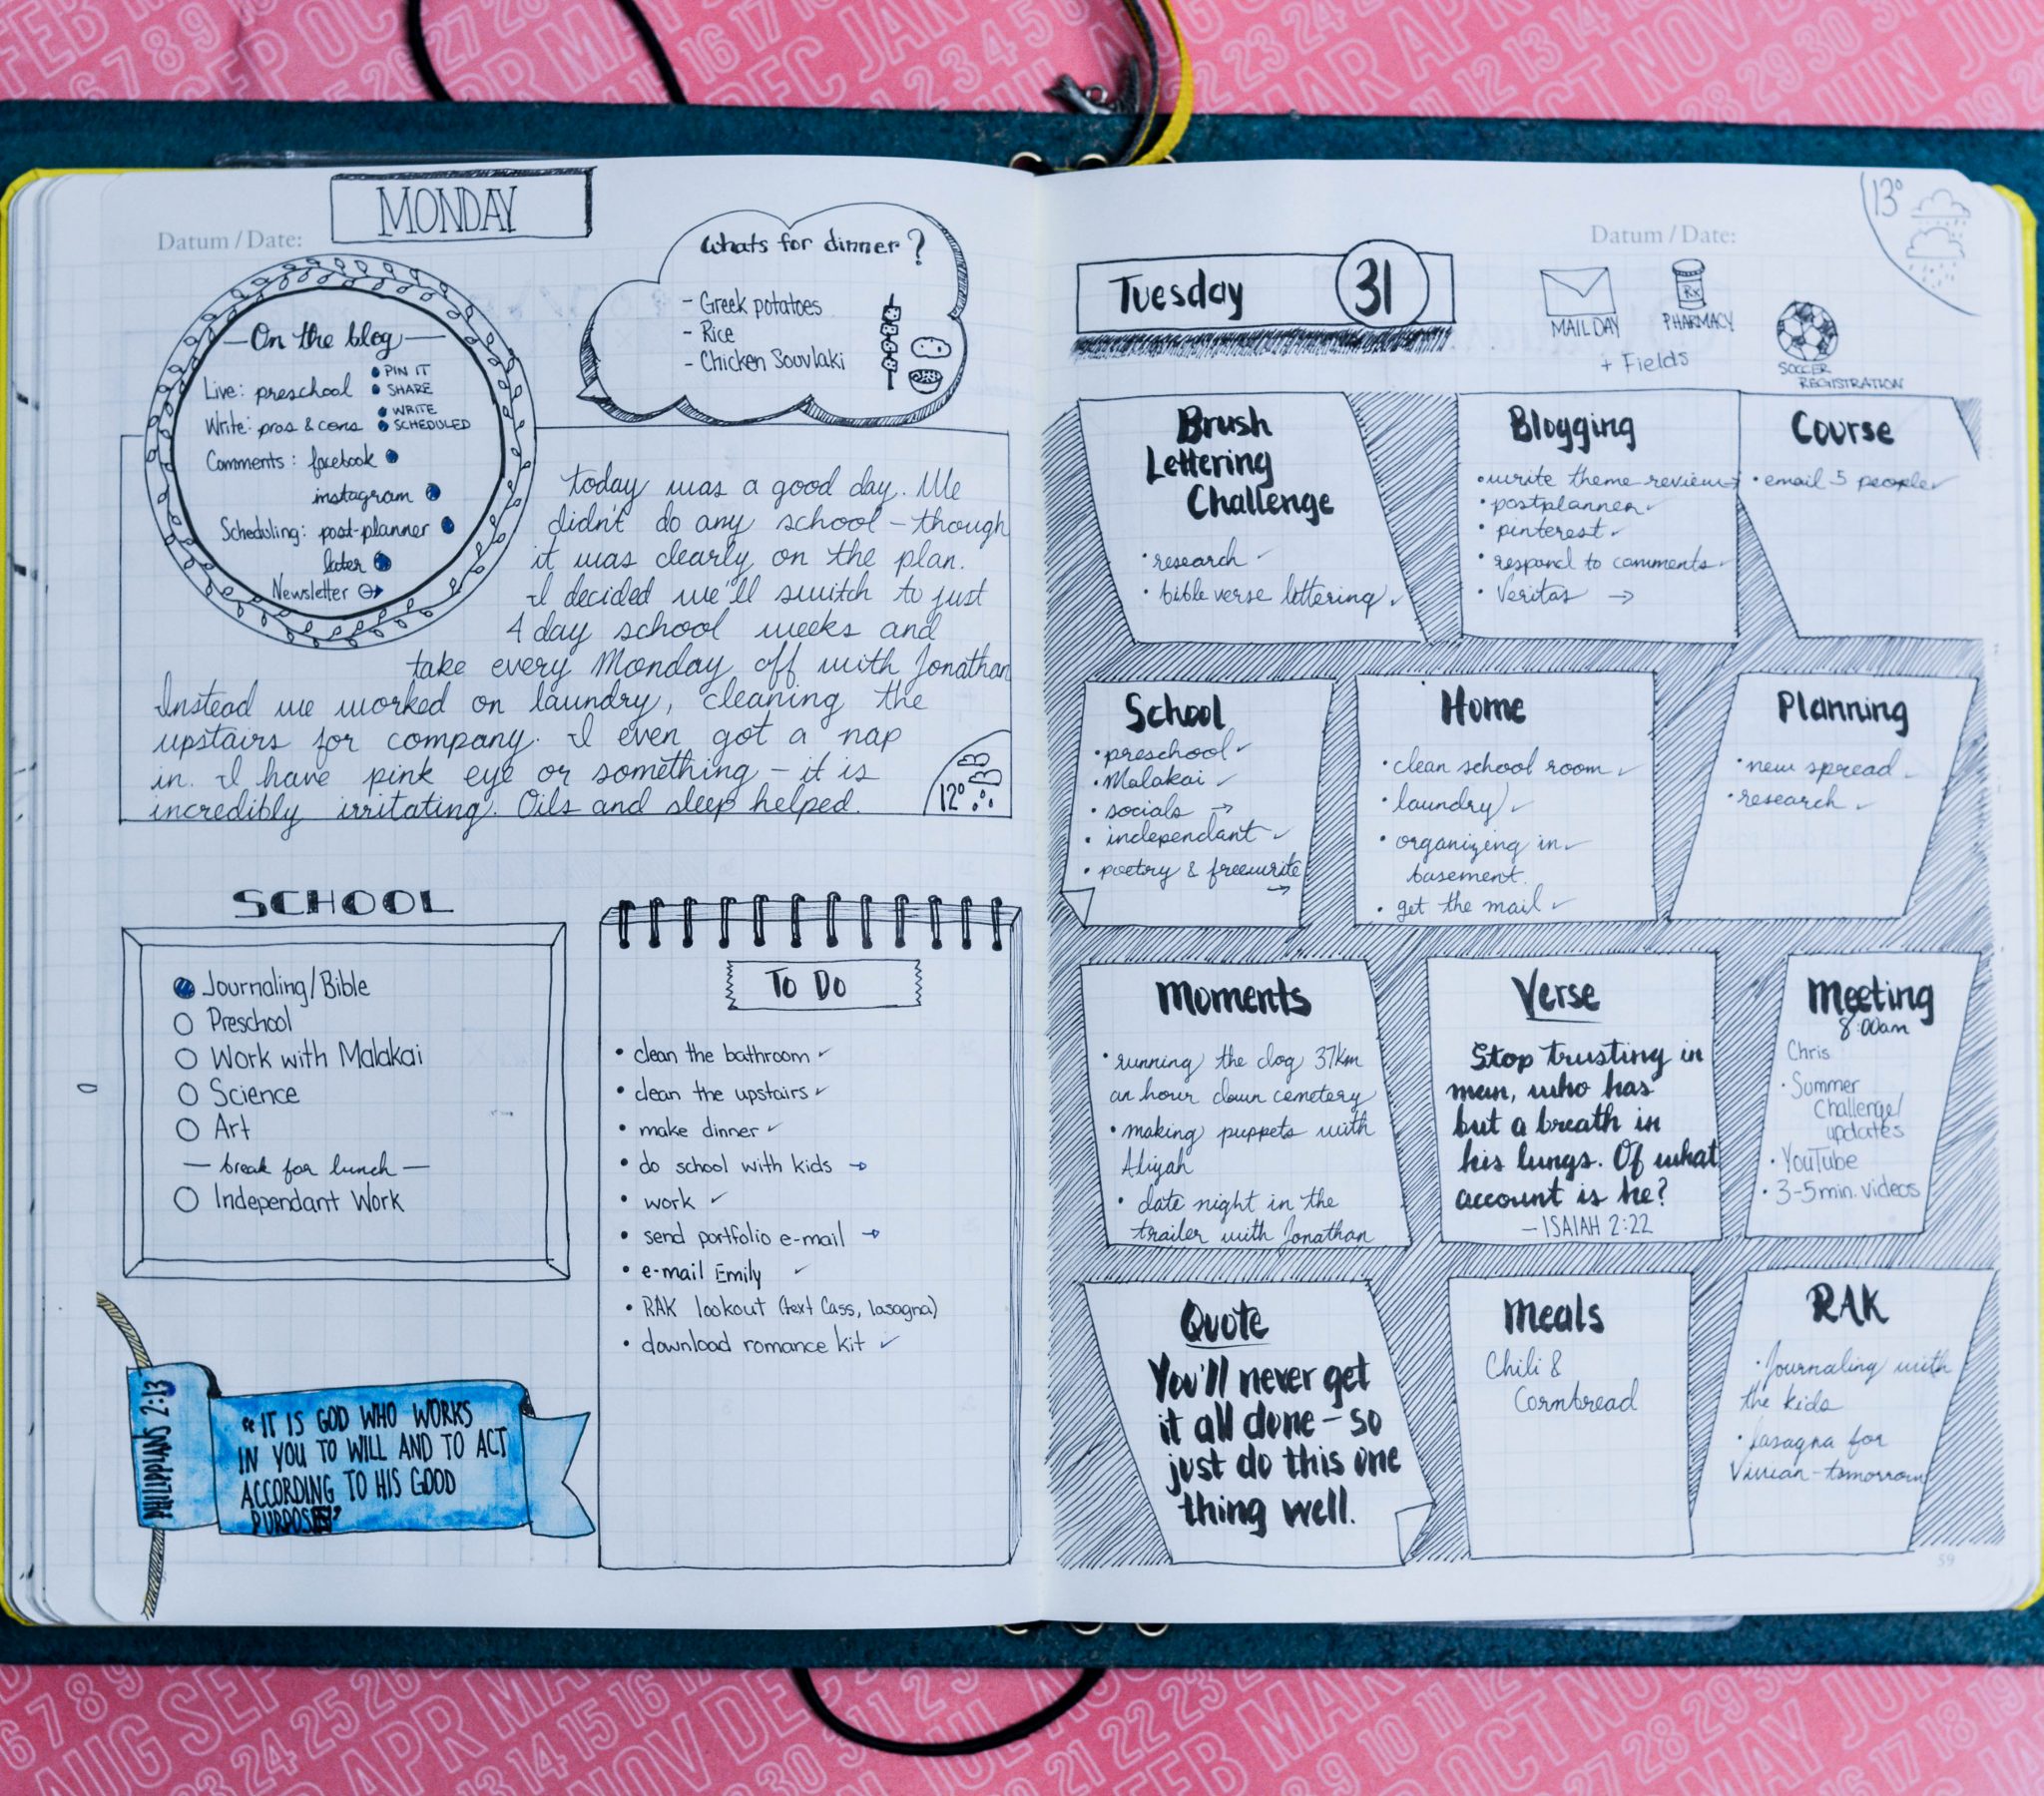 Datum / Date:
MONDAY
On the blog
Live: preschool
• PIN IT
• SHARE
Write: pros & cons
• WRITE
• SCHEDULED
Comments: facebook
instagram
Scheduling: post-planner
later
Newsletter
Whats for dinner?
- Greek potatoes
- Rice
- Chicken Souvlaki
today was a good day. We
didn't do any school - though
it was clearly on the plan.
I decided we'll switch to just
4 day school weeks and
take every Monday off with Jonathan
Instead we worked on laundry, cleaning the
upstairs for company. I even got a nap
in. I have pink eye or something - it is
incredibly irritating. Oils and sleep helped.
12°
SCHOOL
Journaling/Bible
Preschool
Work with Malakai
Science
Art
— break for lunch —
Independant Work
To Do
• clean the bathroom ✓
• clean the upstairs ✓
• make dinner ✓
• do school with kids →
• work ✓
• send portfolio e-mail →
• e-mail Emily ✓
• RAK lookout (text Cass, lasagna)
• download romance kit ✓
PHILIPPIANS 2:13
"IT IS GOD WHO WORKS
IN YOU TO WILL AND TO ACT
ACCORDING TO HIS GOOD
PURPOSE"
Datum / Date:
13°
Tuesday 31
MAIL DAY
RX
PHARMACY
+ Fields
SOCCER
REGISTRATION
Brush
Lettering
Challenge
• research ✓
• bible verse lettering ✓
Blogging
• write theme review →
• postplanner ✓
• pinterest ✓
• respond to comments ✓
• Veritas →
Course
• email 5 people ✓
School
• preschool ✓
• Malakai ✓
• socials →
• independant ✓
• poetry & freewrite
→
Home
• clean school room ✓
• laundry ✓
• organizing in ✓
basement
• get the mail ✓
Planning
• new spread ✓
• research ✓
Moments
• running the dog 37km
an hour down cemetery
• making puppets with
Aliyah
• date night in the
trailer with Jonathan
Verse
Stop trusting in
man, who has
but a breath in
his lungs. Of what
account is he?
- ISAIAH 2:22
Meeting
8:00am
Chris
• Summer
Challenge/
updates
• YouTube
• 3-5 min. videos
Quote
You'll never get
it all done - so
just do this one
thing well.
Meals
Chili &
Cornbread
RAK
• Journaling with
the kids
• lasagna for
Vivian - tomorrow
59